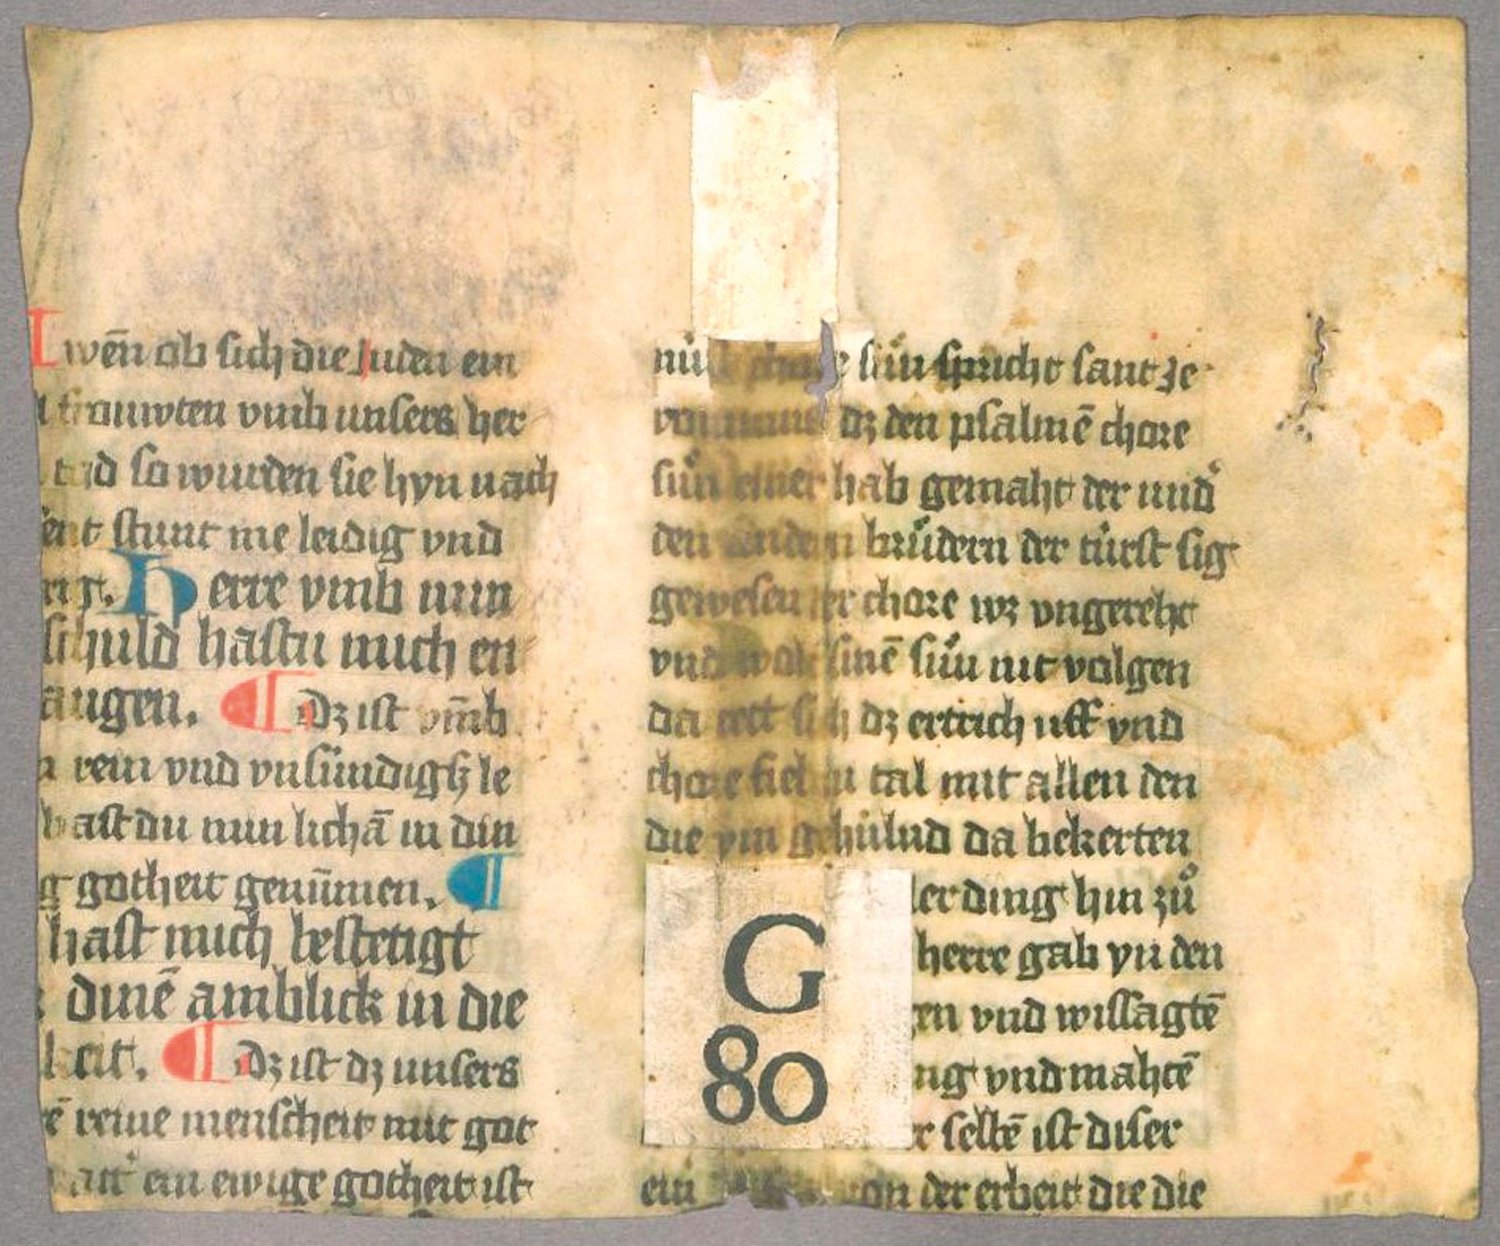 wēn ob sich die Juden ein
trouwten vmb unsers her
so wurden sie hyn nach
stunt me leidig vnd
Herre vmb min
schuld hastu mich en
augen. ¶ Dz ist vm̄b
rein vnd vnsündigs le
hast du min lichā in din
gotheit genūmen. ¶
hast mich bestetigt
dinē amblick in die
keit. ¶ Dz ist dz unsers
reine menscheit mit got
ein ewige gotheit ist
sün spricht sant Je
dz den psalmē chore
sün hab gemaht der und
den brüdern der türst sig
gewesen chore wz vngereht
vnd sinē sün nit volgen
da sich dz ertrich uff vnd
chore fiel tal mit allen den
die ym gehülnd da bekerten
ler ding hin zů
herre gab yn den
en vnd wissagtē
ng vnd mahtē
selbē ist diser
ein von der erbeit die die
G
80